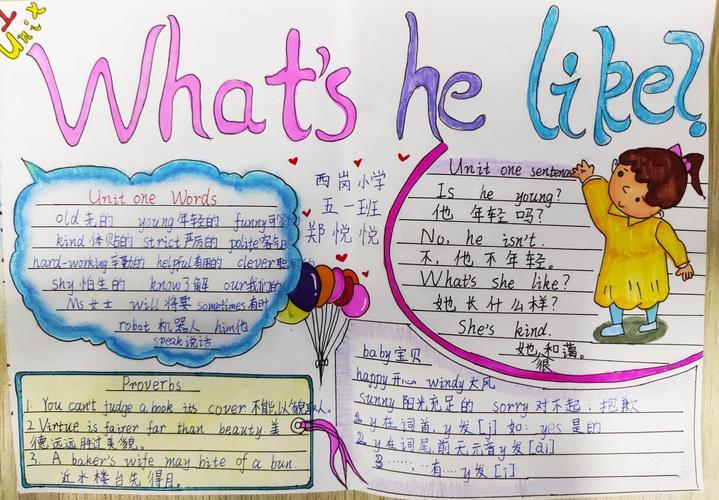 Unit 1
What's he like?
西岗小学
五一班
郑悦悦
Unit one Words
old 老的 young 年轻的 funny
kind 体贴的 strict 严厉的 polite 客气的
hard-working 辛勤的 helpful 有用的 clever
shy 怕生的 know 了解 our 我们的
Ms 女士 will 将要 sometimes 有时
robot 机器人 him 他
speak 说话
Unit one sentences
Is he young?
他年轻吗?
No, he isn't.
不,他不年轻。
What's she like?
她长什么样?
She's kind.
她很和蔼。
Proverbs
1. You can't judge a book its cover 不能以貌取人。
2. Virtue is fairer far than beauty. 美
德远远胜过美貌。
3. A baker's wife may bite of a bun.
近水楼台先得月。
baby 宝贝
happy 开心 windy 大风
sunny 阳光充足的 sorry 对不起;抱歉
1. y在词首,y发[j] 如: yes 是的
2. y在词尾前无元音y发[ai]
3 ……,有…y发[i]